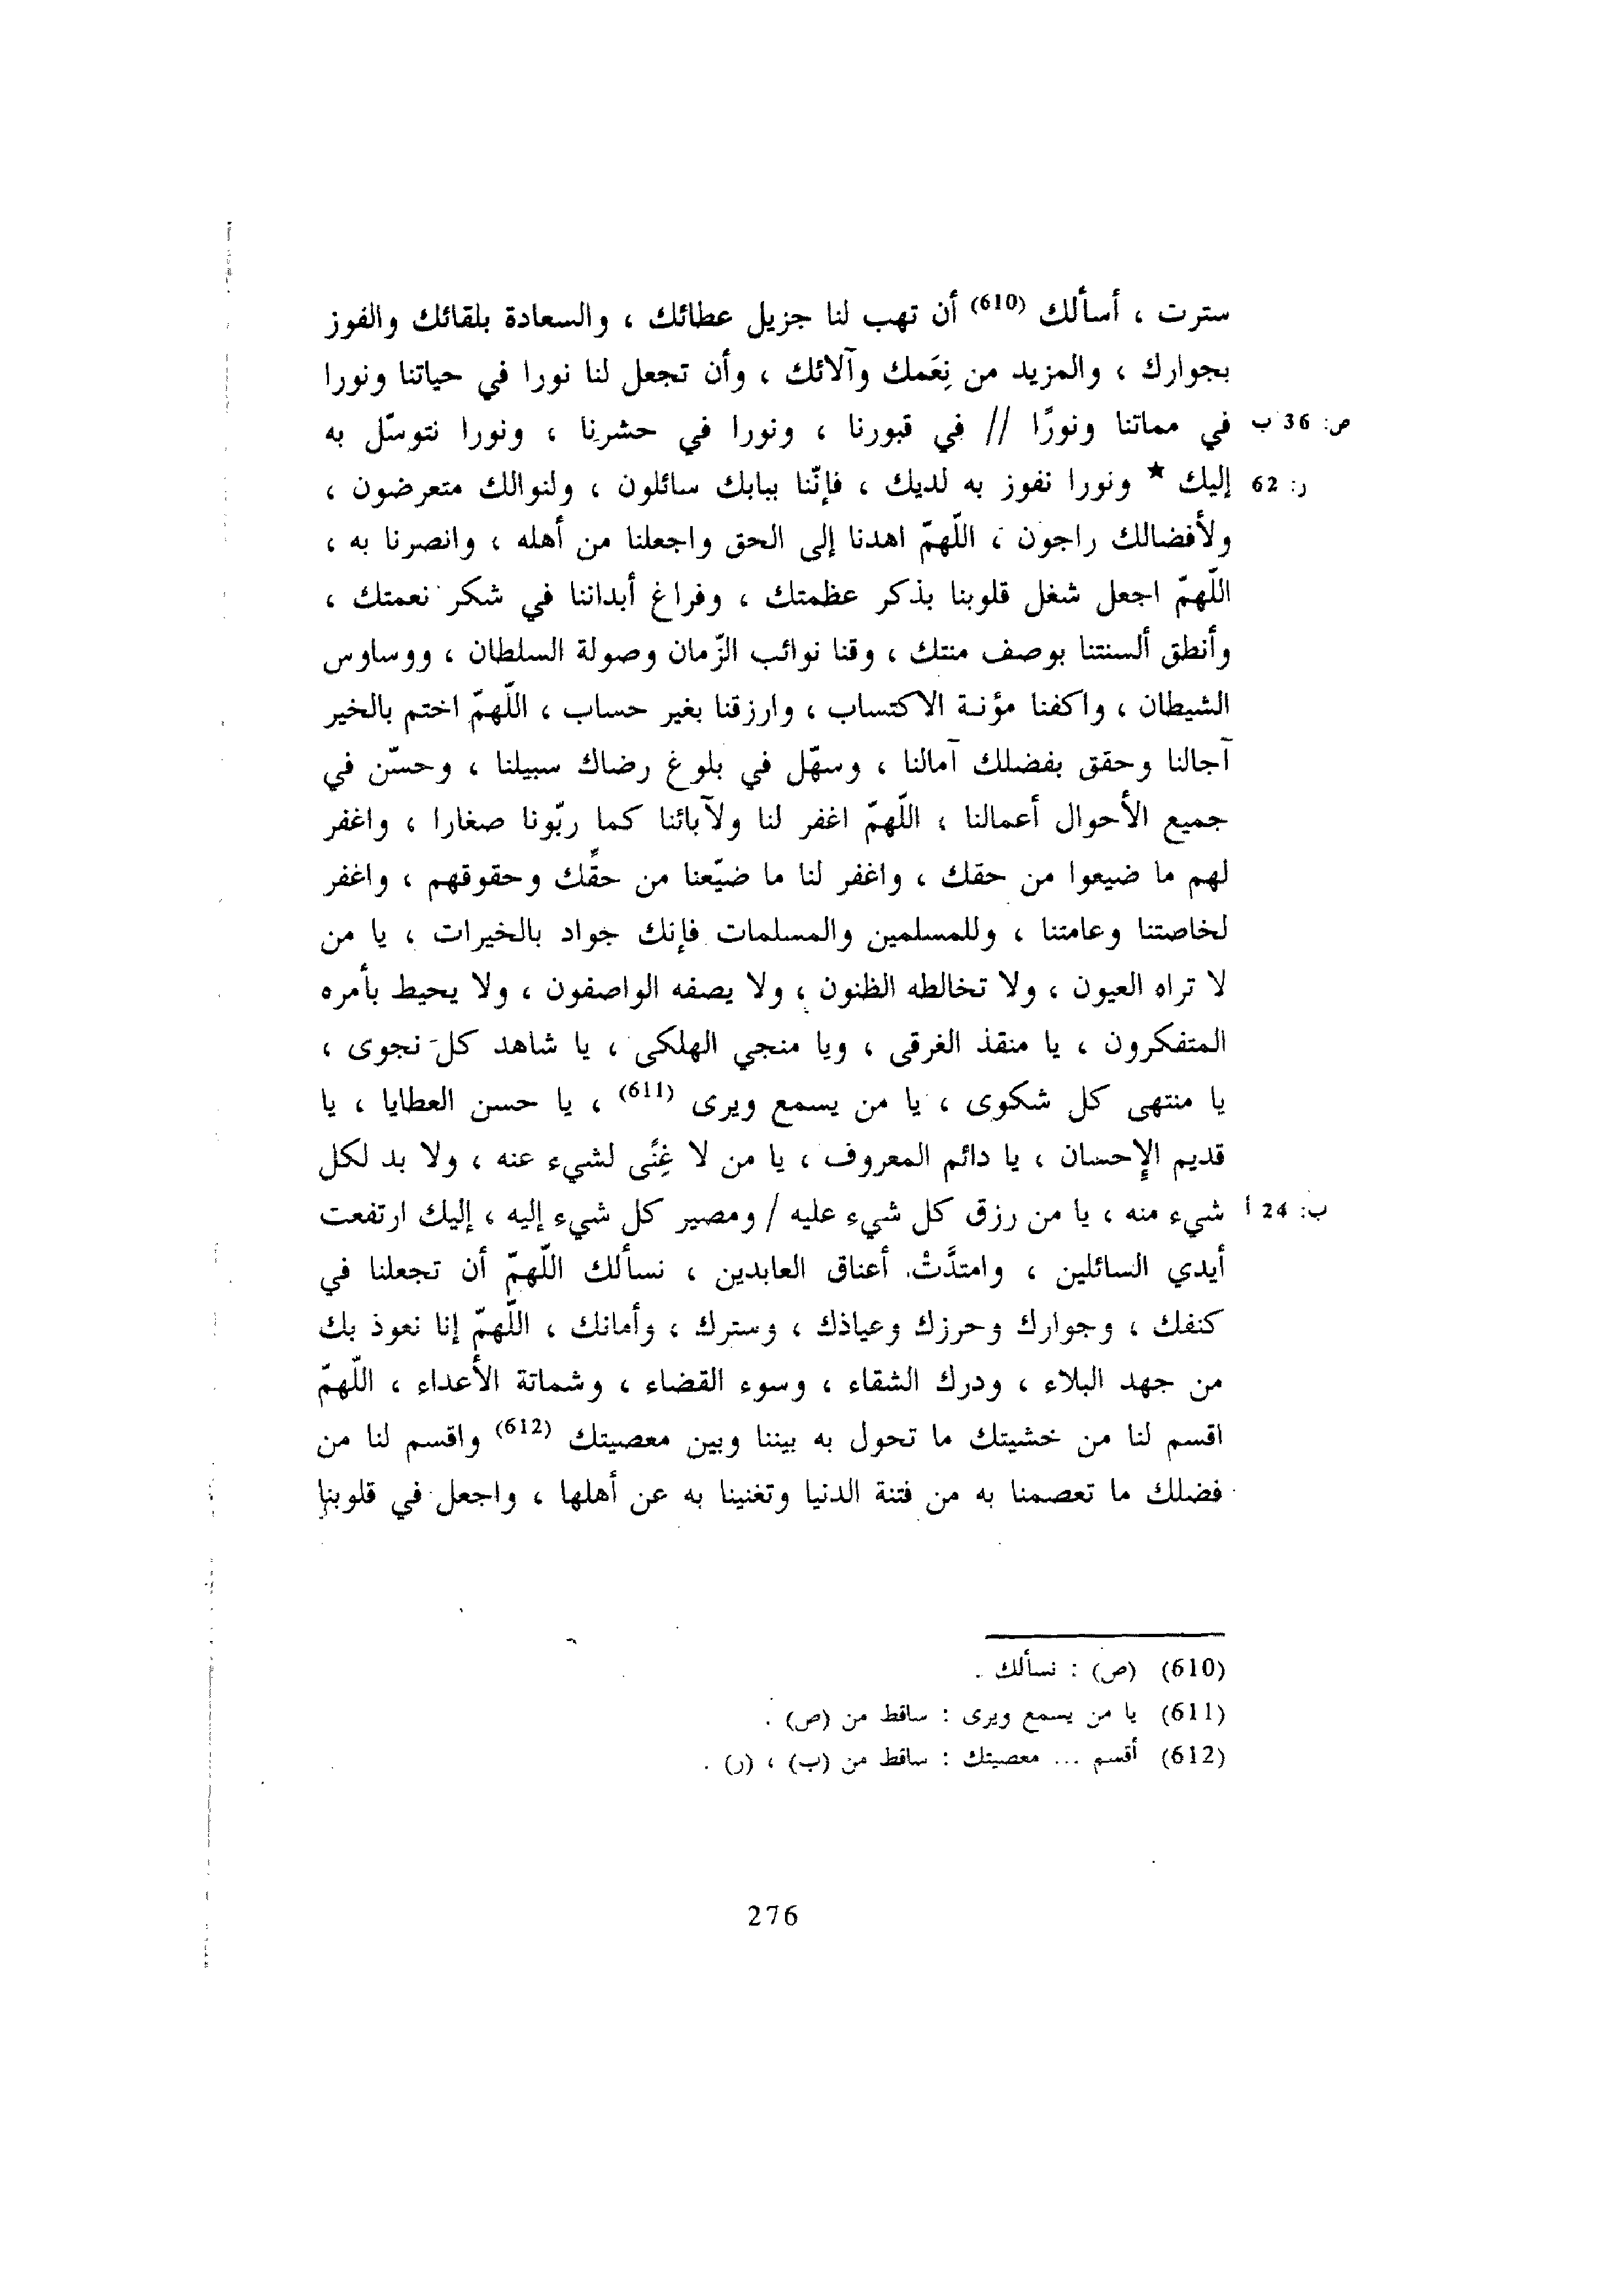 سترت ، أسألك (610) أن تهب لنا جزيل عطائك ، والسعادة بلقائك والفوز
بجوارك ، والمزيد من نِعَمك وآلائك ، وأن تجعل لنا نورا في حياتنا ونورا
ص: 36 ب في مماتنا ونورًا // في قبورنا ، ونورا في حشرنا ، ونورا نتوسّل به
ر: 62 إليك * ونورا نفوز به لديك ، فإنّنا ببابك سائلون ، ولنوالك متعرضون ،
ولأفضالك راجون ، اللّهمّ اهدنا إلى الحق واجعلنا من أهله ، وانصرنا به ،
اللّهمّ اجعل شغل قلوبنا بذكر عظمتك ، وفراغ أبداننا في شكر نعمتك ،
وأنطق ألسنتنا بوصف منتك ، وقنا نوائب الزّمان وصولة السلطان ، ووساوس
الشيطان ، واكفنا مؤنة الاكتساب ، وارزقنا بغير حساب ، اللّهمّ اختم بالخير
آجالنا وحقق بفضلك آمالنا ، وسهّل في بلوغ رضاك سبيلنا ، وحسّن في
جميع الأحوال أعمالنا ، اللّهمّ اغفر لنا ولآبائنا كما ربّونا صغارا ، واغفر
لهم ما ضيعوا من حقك ، واغفر لنا ما ضيّعنا من حقِّك وحقوقهم ، واغفر
لخاصتنا وعامتنا ، وللمسلمين والمسلمات فإنك جواد بالخيرات ، يا من
لا تراه العيون ، ولا تخالطه الظنون ، ولا يصفه الواصفون ، ولا يحيط بأمره
المتفكرون ، يا منقذ الغرقى ، ويا منجي الهلكى ، يا شاهد كل نجوى ،
يا منتهى كل شكوى ، يا من يسمع ويرى (611) ، يا حسن العطايا ، يا
قديم الإحسان ، يا دائم المعروف ، يا من لا غِنًى لشيء عنه ، ولا بد لكل
ب: 24 أ شيء منه ، يا من رزق كل شيء عليه / ومصير كل شيء إليه ، إليك ارتفعت
أيدي السائلين ، وامتدَّتْ أعناق العابدين ، نسألك اللّهمّ أن تجعلنا في
كنفك ، وجوارك وحرزك وعياذك ، وسترك ، وأمانك ، اللّهمّ إنا نعوذ بك
من جهد البلاء ، ودرك الشقاء ، وسوء القضاء ، وشماتة الأعداء ، اللّهمّ
اقسم لنا من خشيتك ما تحول به بيننا وبين معصيتك (612) واقسم لنا من
فضلك ما تعصمنا به من فتنة الدنيا وتغنينا به عن أهلها ، واجعل في قلوبنا
(610) (ص) : نسألك .
(611) يا من يسمع ويرى : ساقط من (ص) .
(612) أقسم ... معصيتك : ساقط من (ب) ، (ر) .
276